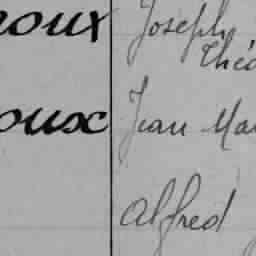 roux Joseph
Théo
oux Jean Mar
Alfred